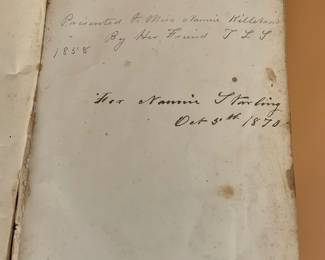 Presented to Miss Nannie
By Her Friend T L S
1858
For Nannie Starling
Oct 5th 1870